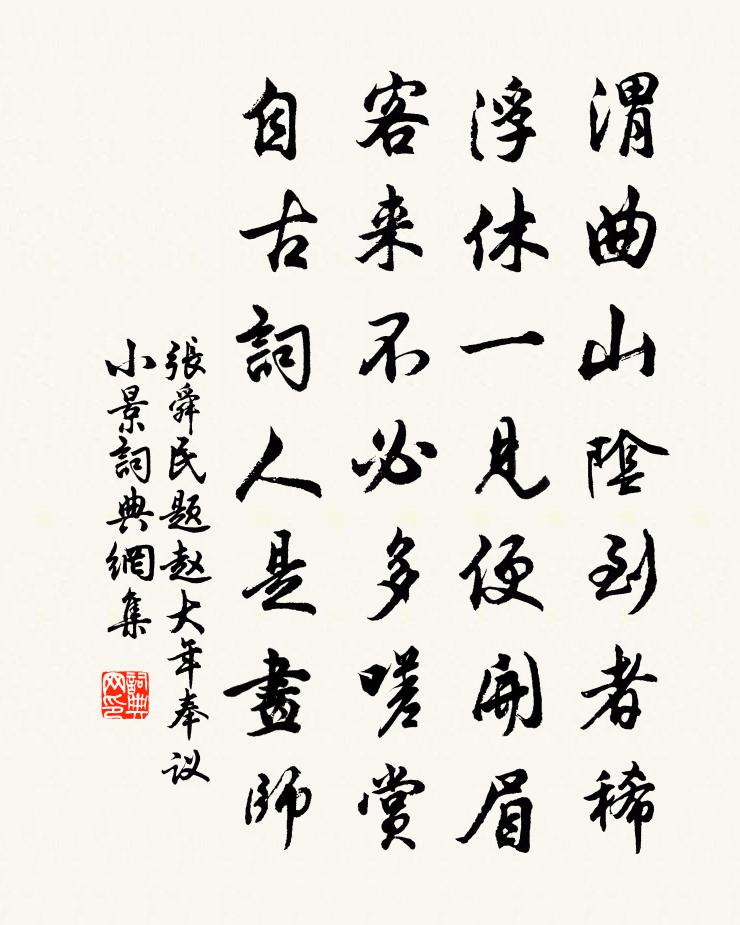 渭曲山陰到者稀
浮休一見便開眉
客来不必多嗟赏
自古詞人是畫師
張舜民题赵大年奉议
小景詞典網集
詞典網印